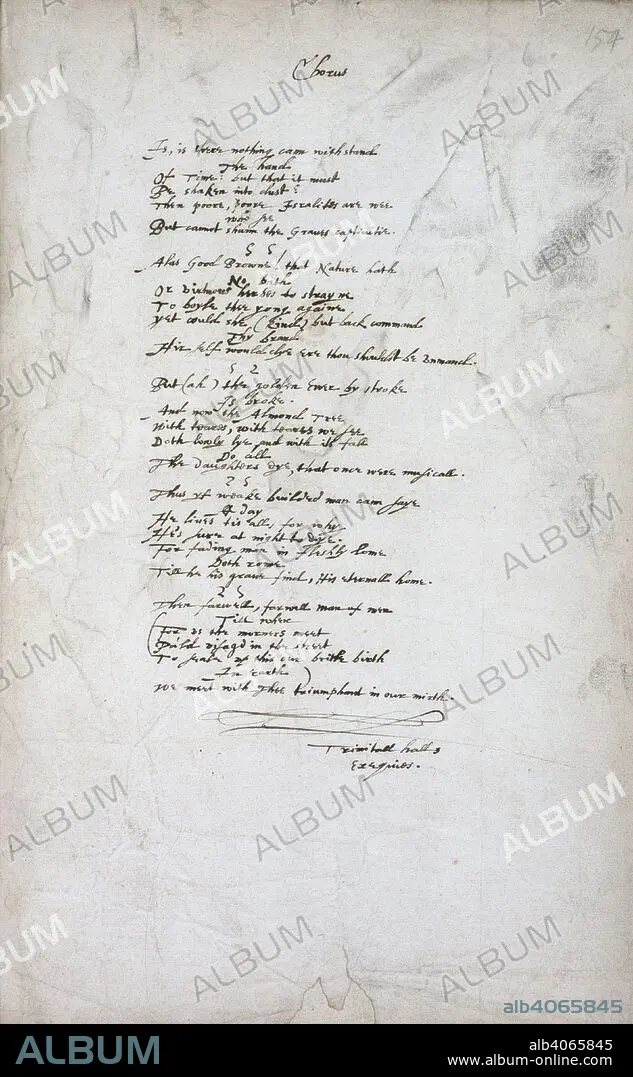 157
Chorus
Is, is there nothing cann withstand
The hand
Of Time: but that it must
Be shaken into dust?
Then poore, poore Isralites are wee
Who see
But cannot shunn the Graves captivitie.
Alas Good Browne! that Nature hath
No bath
Or virtuous herbes to strayne
To boyle thee yong againe
Yet could she (kind) but back command
Thy brand
Her self would dye ere thou shouldst be unmand.
But (ah) the golden Ewer by stroke
Is broke.
And now the Almond Tree
With teares, with teares we see
Doth lowly lye, and with its fall
Do all
The daughters dye, that once were musicall.
Thus yf weake builded man cann saye
A day
He lives tis all, for why
He's sure at night to dye.
For fading man in fleshly lome
Doth rome
Till he his grave find, His eternall home.
Then farwell, farwell man of men
Till when
(For us the morners meet
Pald visagd in the street
To seale up this our britle birth
In earth)
We meet with Thee triumphant in our mirth.
Trinitall halls
Exequies.
ALBUM
alb4065845
ALBUM
alb4065845
www.album-online.com